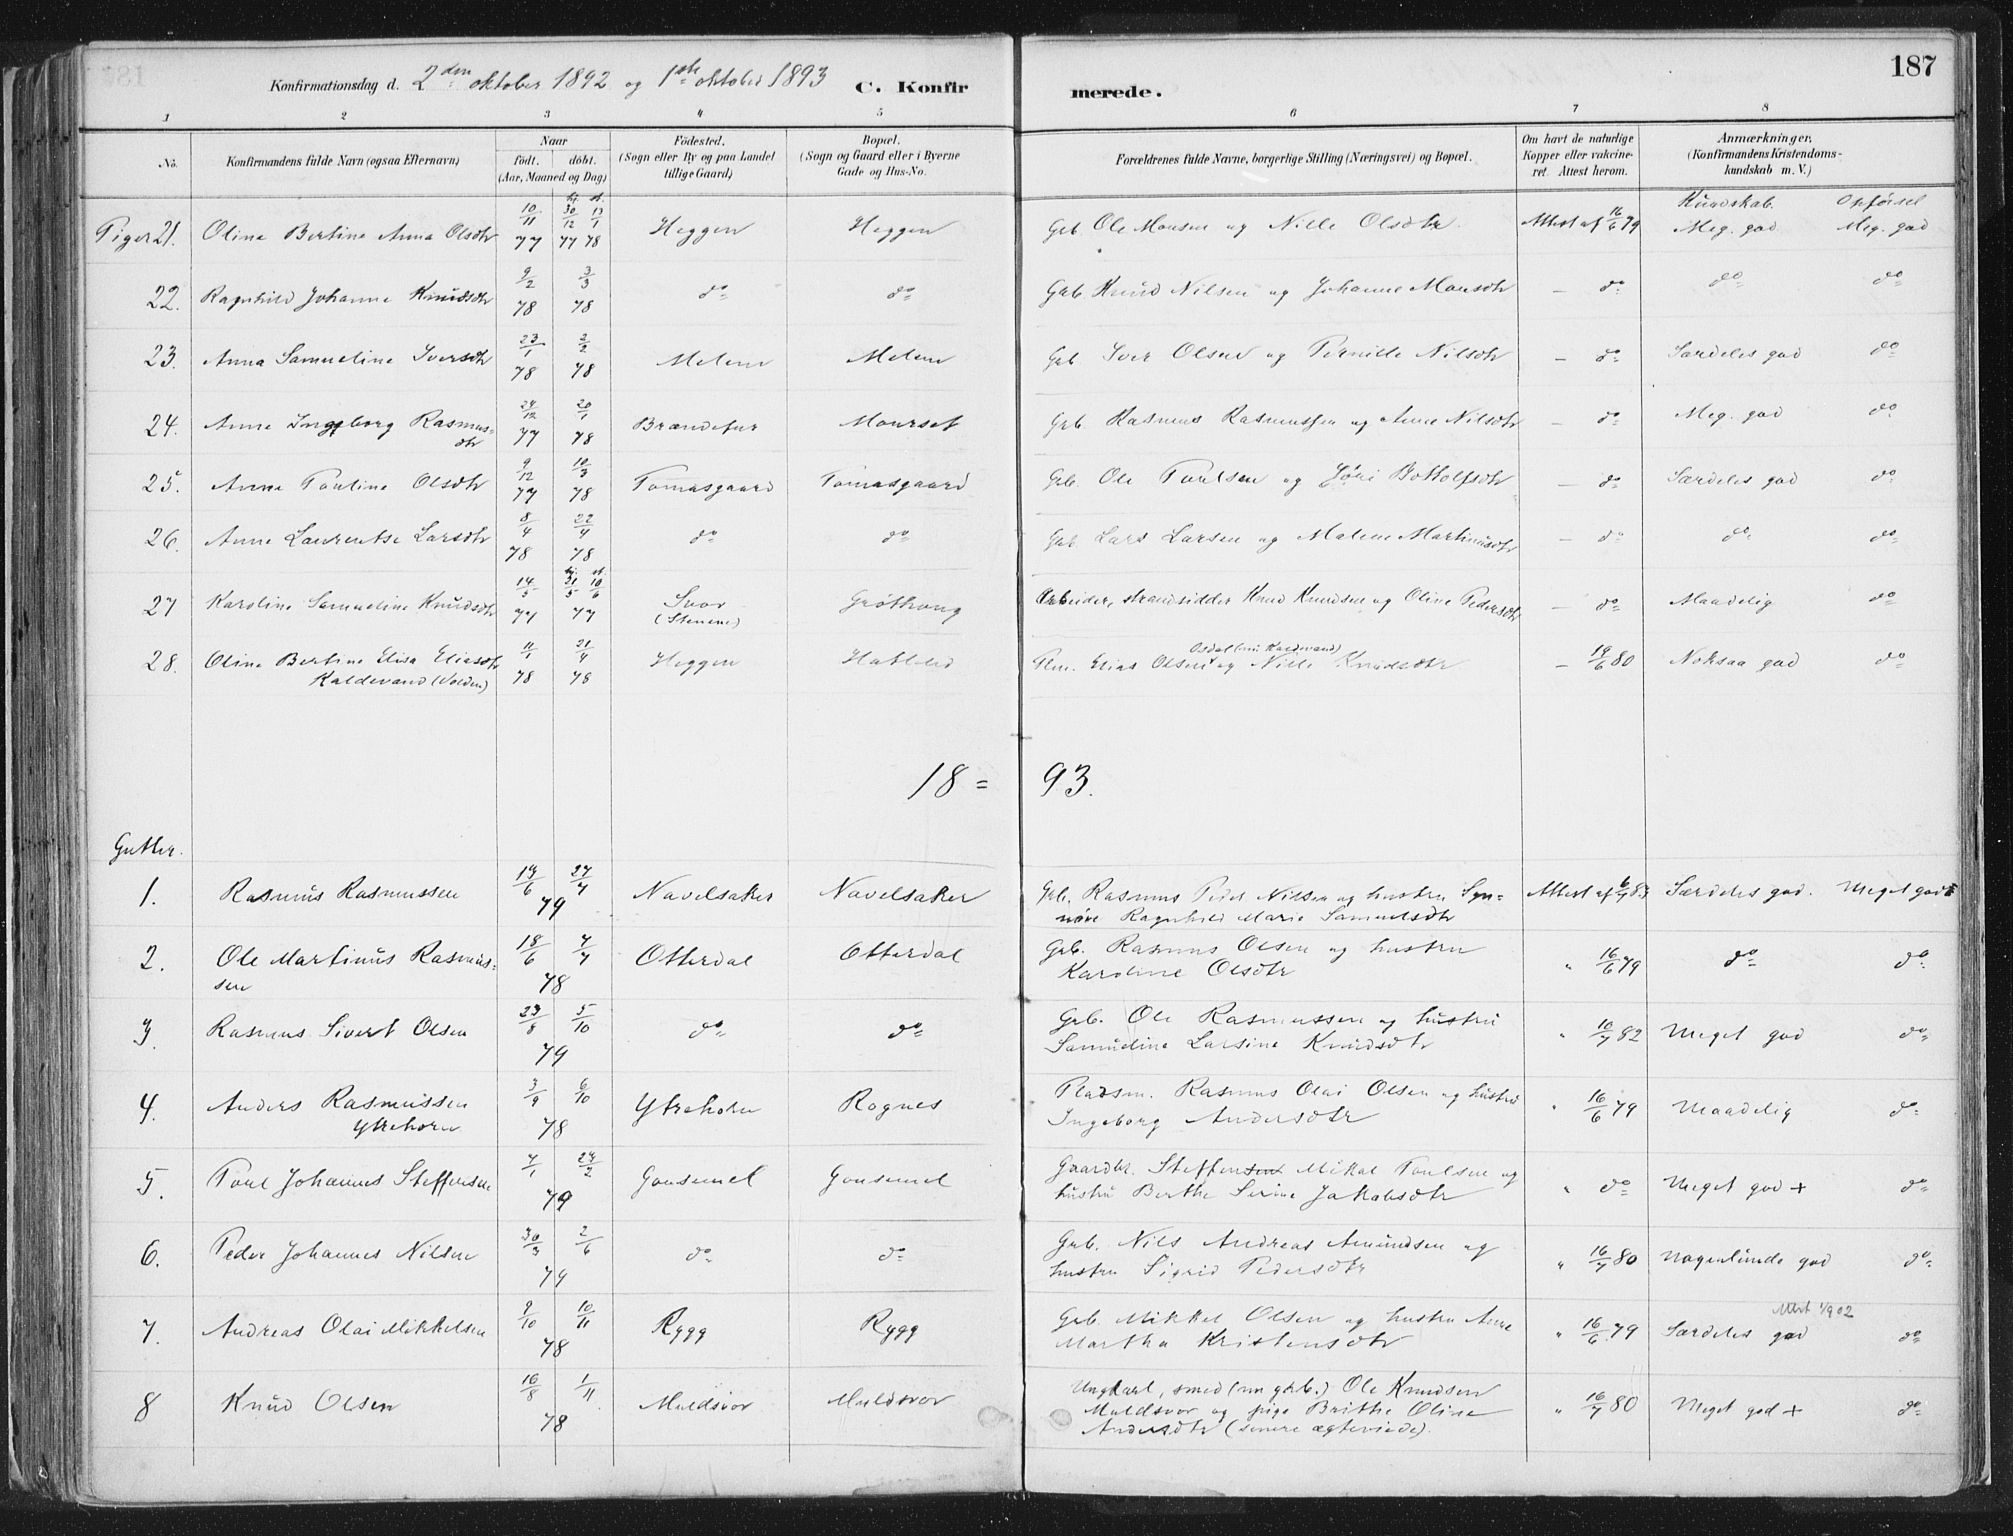 187
Konfirmationsdag d. 2den oktober 1892 og 1ste oktober 1893 C. Konfir merede.
1 2 3 4 5 6 7 8
No. Konfirmandens fulde Navn (ogsaa Efternavn) Naar født. døbt. (Aar, Maaned og Dag) Fødested. (Sogn eller By og paa Landet tillige Gaard) Bopæl. (Sogn og Gaard eller i Byerne Gade og Hus-No. Forældrenes fulde Navne, borgerlige Stilling (Næringsvei) og Bopæl. Om havt de naturlige Kopper eller vakcineret. Attest herom. Anmærkninger. (Konfirmandens Kristendomskundskab m. V.)
Kundskab. Opførsel
Piger 21. Oline Bertine Anna Olsdtr 10/11 77 hj. 30/12 77 st. 13/1 78 Heggen Heggen Grb. Ole Monsen og Nille Olsdtr. Attest af 16/6 79 Meg. god Meg. god
22. Ragnhild Johanne Knudsdtr 9/2 78 3/3 78 do do Grb Knud Nilsen og Johanne Monsdtr – do do do
23. Anna Samueline Iversdtr 23/1 78 2/2 78 Melem Melem Grb. Iver Olsen og Pernille Nilsdtr – do Særdeles god do
24. Anne Ingeborg Rasmusdtr 24/12 77 20/1 78 Brændefur Mourset Grb Rasmus Rasmussen og Anne Nilsdtr – do Meg. god do
25. Anne Pauline Olsdtr 9/12 77 10/3 78 Tomasgaard Tomasgaard Grb. Ole Poulsen og Jøri Bottolfsdtr – do Særdeles god do
26. Anne Laurentse Larsdtr 8/4 78 22/4 78 do do Grb. Lars Larsen og Malene Martinusdtr – do do do
27 Karoline Samueline Knudsdtr 14/5 77 hj. 21/5 st. 10/6 77 Svor (Stenene) Grøthaug Arbeider, strandsidder Knud Knudsen og Oline Pedersdtr – do Maadelig do
28. Oline Bertine Elisa Eliasdtr Kaldevand (Volden) 11/1 78 21/4 78 Heggen Hatleli Plm. Elias Olsen Osdal (nu Kaldevand) og Nille Knudsdtr – 19/6 80 Noksaa god do
18 = 93.
Gutter.
1. Rasmus Rasmussen 19/6 27/7 79 Navelsaker Navelsaker Grb. Rasmus Peder Nilssen og hustru Synnøve Ragnhild Marie Samuelsdtr Attest af 6/7 83 Særdeles god. Meget god
2. Ole Martinus Rasmussen 18/6 7/7 78 Otterdal Otterdal Grb. Rasmus Olsen og hustru Karoline Olsdtr " 16/6 79 do do
3. Rasmus Sivert Olsen 23/8 5/10 79 do do Grb. Ole Rasmussen og hustru Samueline Larsine Knudsdtr " 10/7 82 Meget god do
4. Anders Rasmussen Ytrehorn 3/9 6/10 78 Ytrehorn Rognes Pladsm. Rasmus Olai Olsen og hustru Ingeborg Andersdtr " 16/6 79 Maadelig do
5. Poul Johannes Steffensen 7/1 24/2 79 Gausemel Gausemel Gaardbr. Steffensen Mikal Poulsen og hustru Berthe Serine Jakobsdtr " do Meget god + do
6. Peder Johannes Nilsen 30/3 2/6 79 do do Grb. Nils Andreas Amundsen og hustru Sigrid Pedersdtr " 16/7 80 Nogenlunde god do
7. Andreas Olai Mikkelsen 9/10 10/11 78 Rygg Rygg Grb. Mikkel Olsen og hustru Anne Martha Kristensdtr " 16/6 79 Særdeles god Attest 1/9 02 do
8 Knud Olsen 16/8 1/11 78 Muldsvor Muldsvor Ungkarl, smed (nu grb.) Ole Knudsen Muldsvor og pige Brithe Oline Andersdtr (senere ægteviede). " 16/7 80 Meget god + do